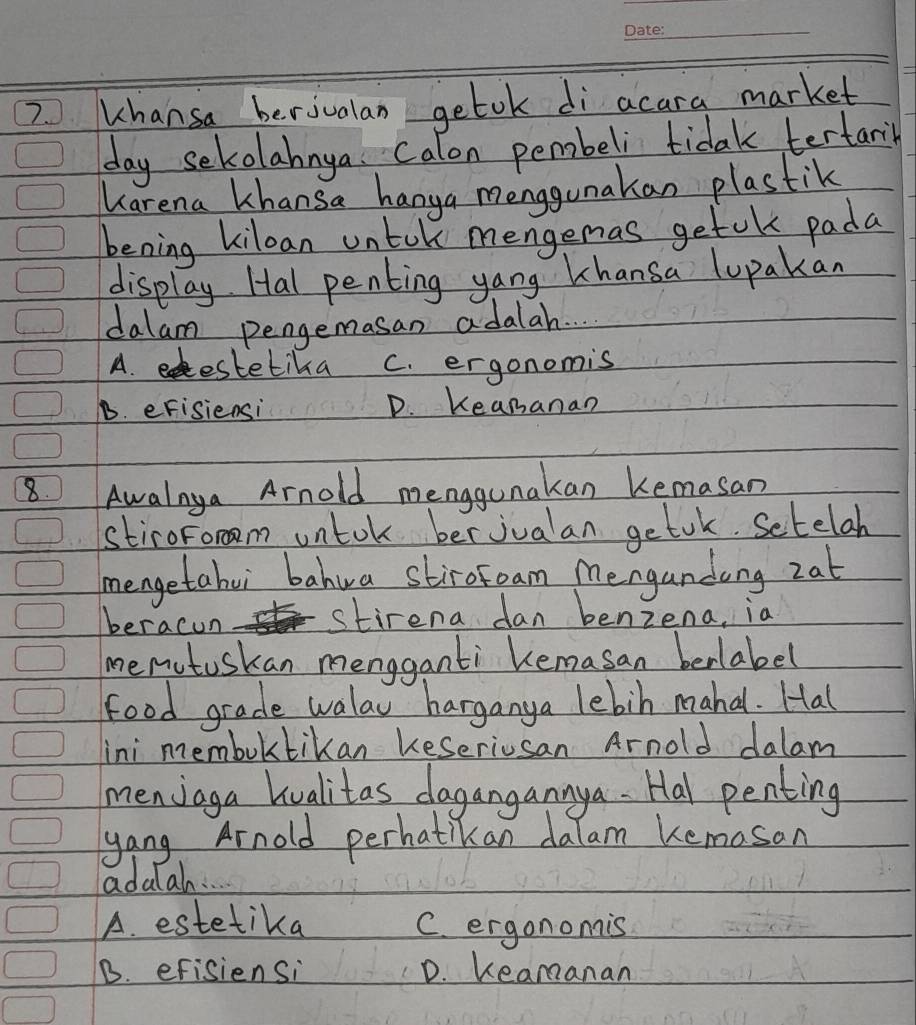 Date:
7. Khansa berjualan getuk di acara market
day sekolahnya. Calon pembeli tidak tertarik
karena Khansa hanya menggunakan plastik
bening kiloan untuk mengemas getuk pada
display. Hal penting yang Khansa lupakan
dalam pengemasan adalah....
A. estetika C. ergonomis
B. efisiensi D. Keamanan
8. Awalnya Arnold menggunakan kemasan
stirofoam untuk berjualan getuk. Setelah
mengetahui bahwa stirofoam mengandung zat
beracun stirena dan benzena, ia
memutuskan mengganti kemasan berlabel
food grade walau harganya lebih mahal. Hal
ini membuktikan keseriusan Arnold dalam
menjaga kualitas dagangannya. Hal penting
yang Arnold perhatikan dalam kemasan
adalah....
A. estetika C. ergonomis
B. efisiensi D. Keamanan